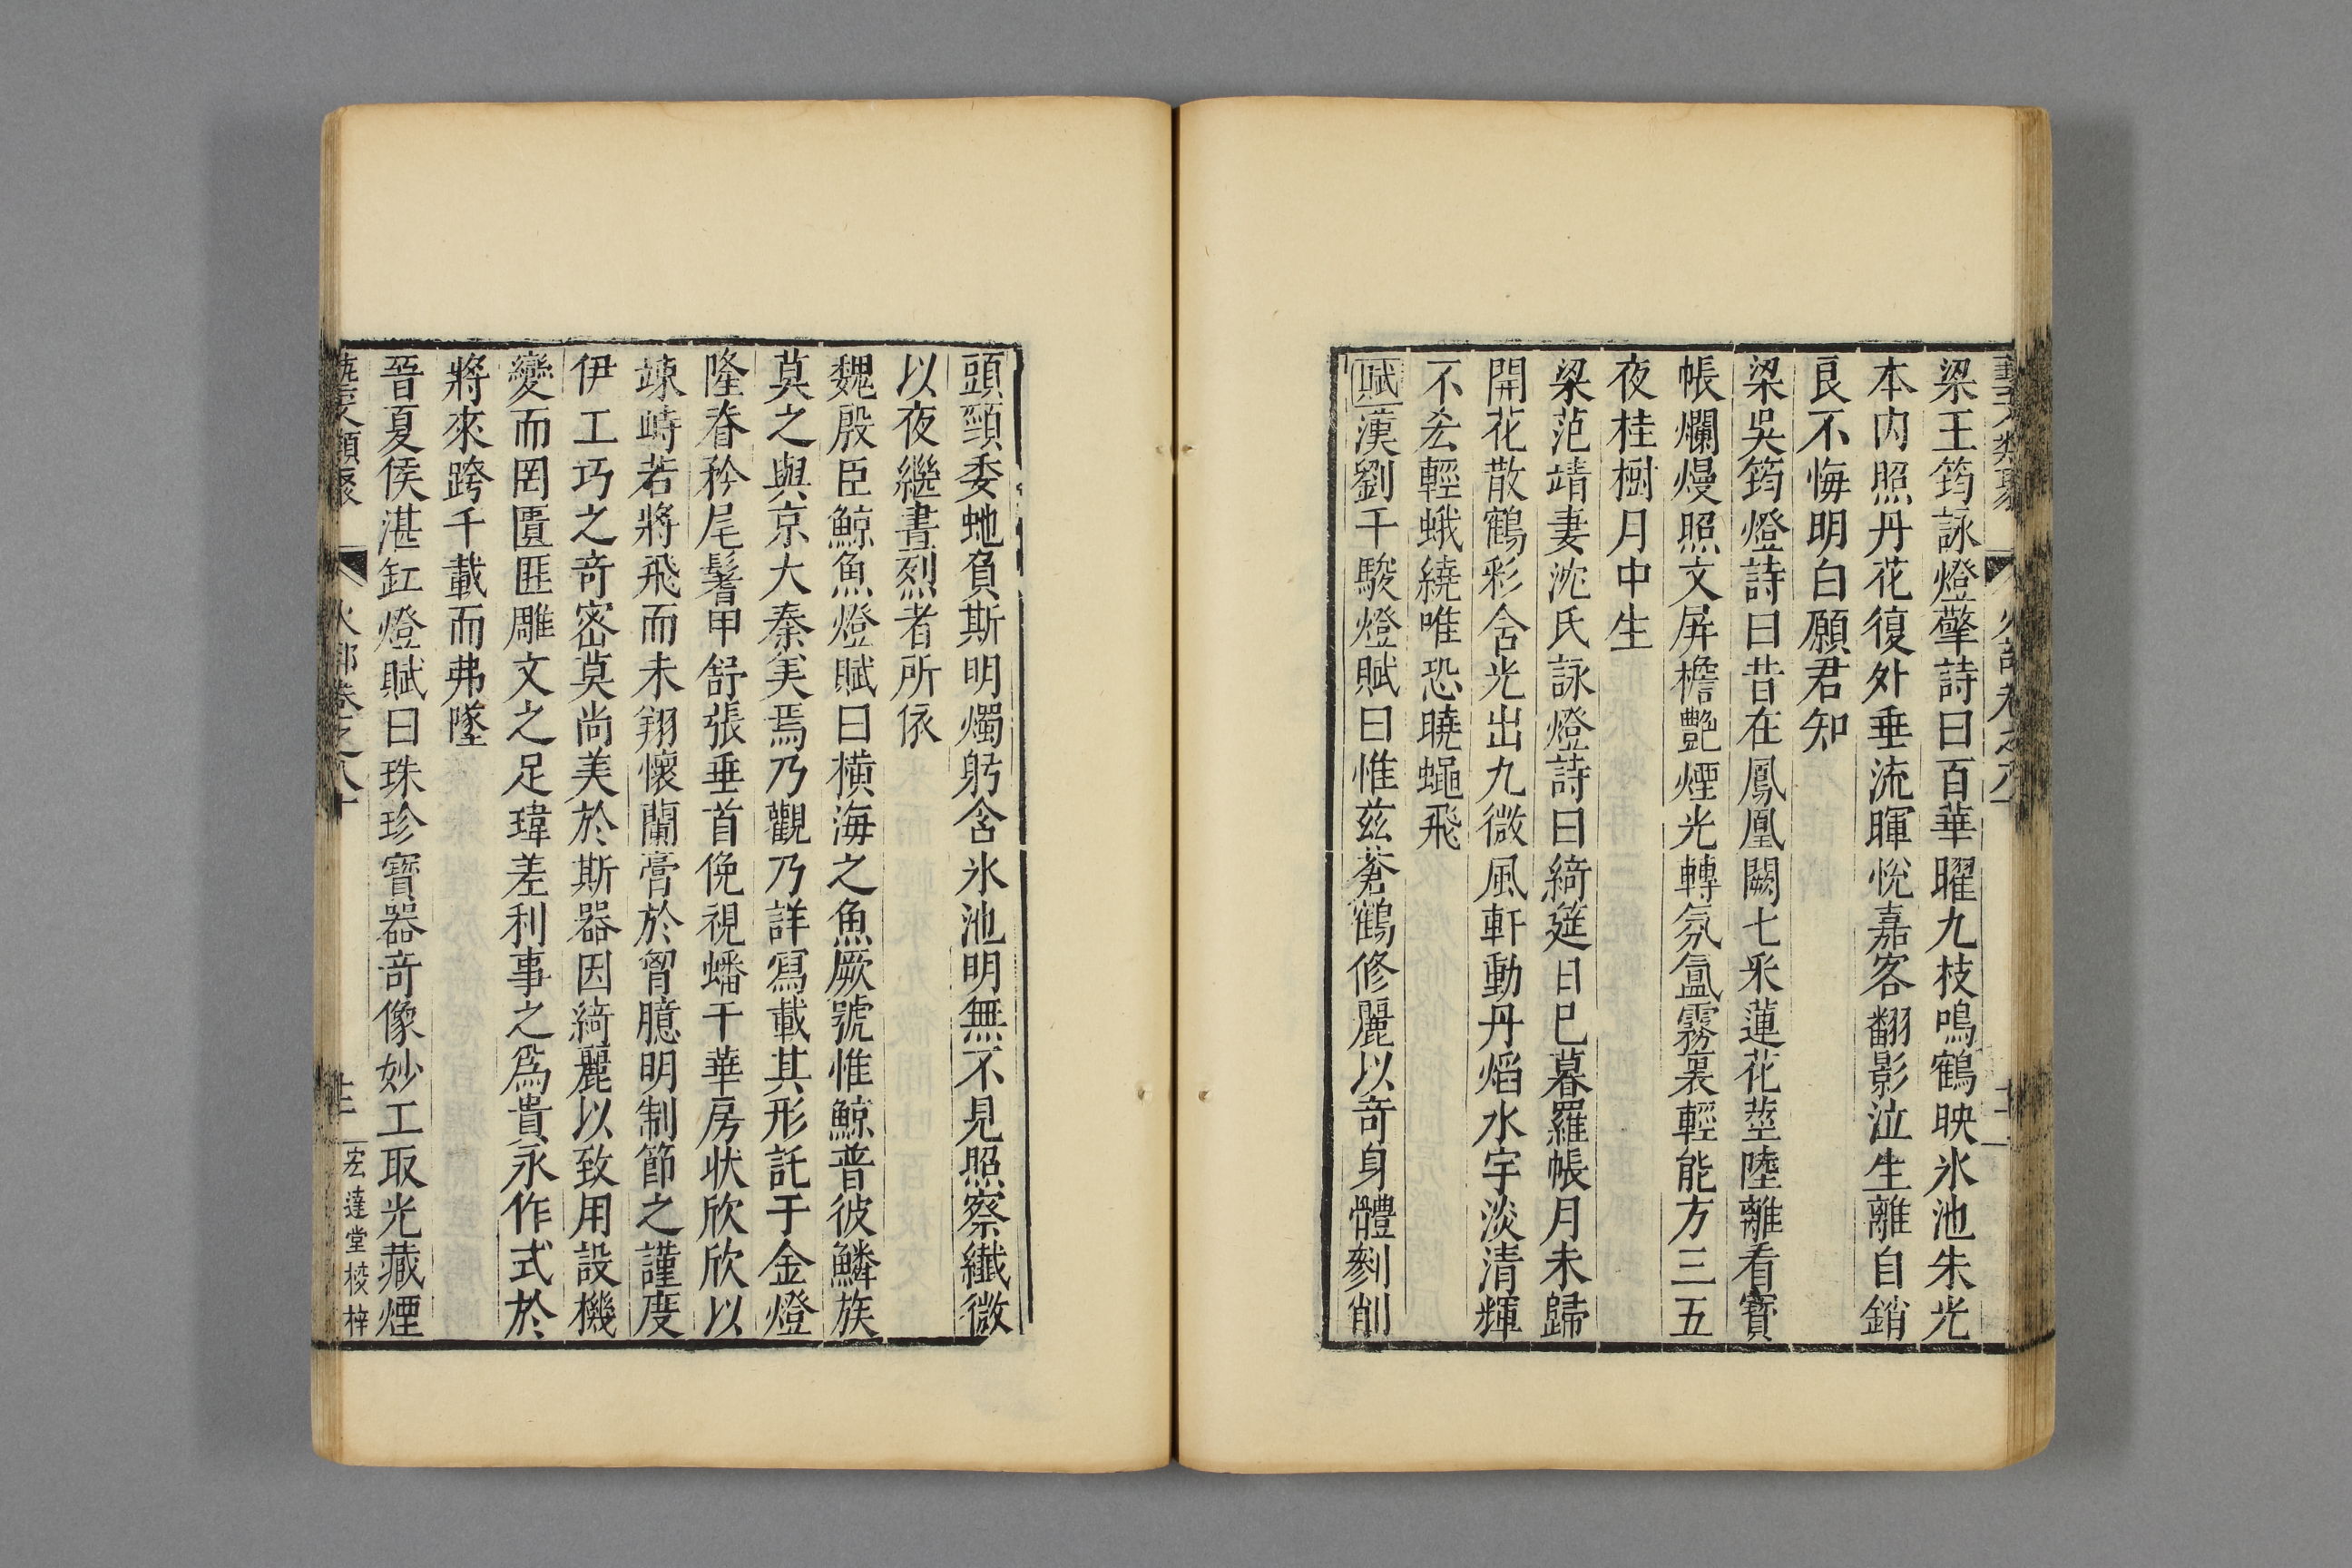 梁王筠詠燈擎詩曰百華曜九枝鳴鶴映氷池朱光
本内照丹花復外垂流暉悅嘉客翻影泣生離自銷
良不悔明白願君知
梁吳筠燈詩曰昔在鳳凰闕七采蓮花莖陸離看寶
帳爛熳照文屏檐艶煙光轉氛氳霧裏輕能方三五
夜桂樹月中生
梁范靖妻沈氏詠燈詩曰綺筵日巳暮羅帳月未歸
開花散鶴彩含光出九微風軒動丹熖水宇淡清輝
不厺輕蛾繞唯恐曉蠅飛
賦漢劉干駿燈賦曰惟茲蒼鶴修麗以竒身體剡削
頭頸委虵負斯明燭躬含氷池明無不見照察纎微
以夜繼晝烈者所依
魏殷臣鯨魚燈賦曰橫海之魚厥號惟鯨普彼鱗族
莫之與京大秦美焉乃觀乃詳寫載其形託于金燈
隆脊矜尾鬐甲舒張垂首俛視蟠干華房狀欣欣以
竦峙若將飛而未翔懷蘭膏於胷臆明制節之謹度
伊工巧之竒密莫尚美於斯器因綺麗以致用設機
變而罔匱匪雕文之足瑋差利事之爲貴永作式於
將來跨千載而弗墜
晉夏侯湛缸燈賦曰珠珍寶器竒像妙工取光藏煙
藝文類聚 火部卷之八十 宏達堂校梓